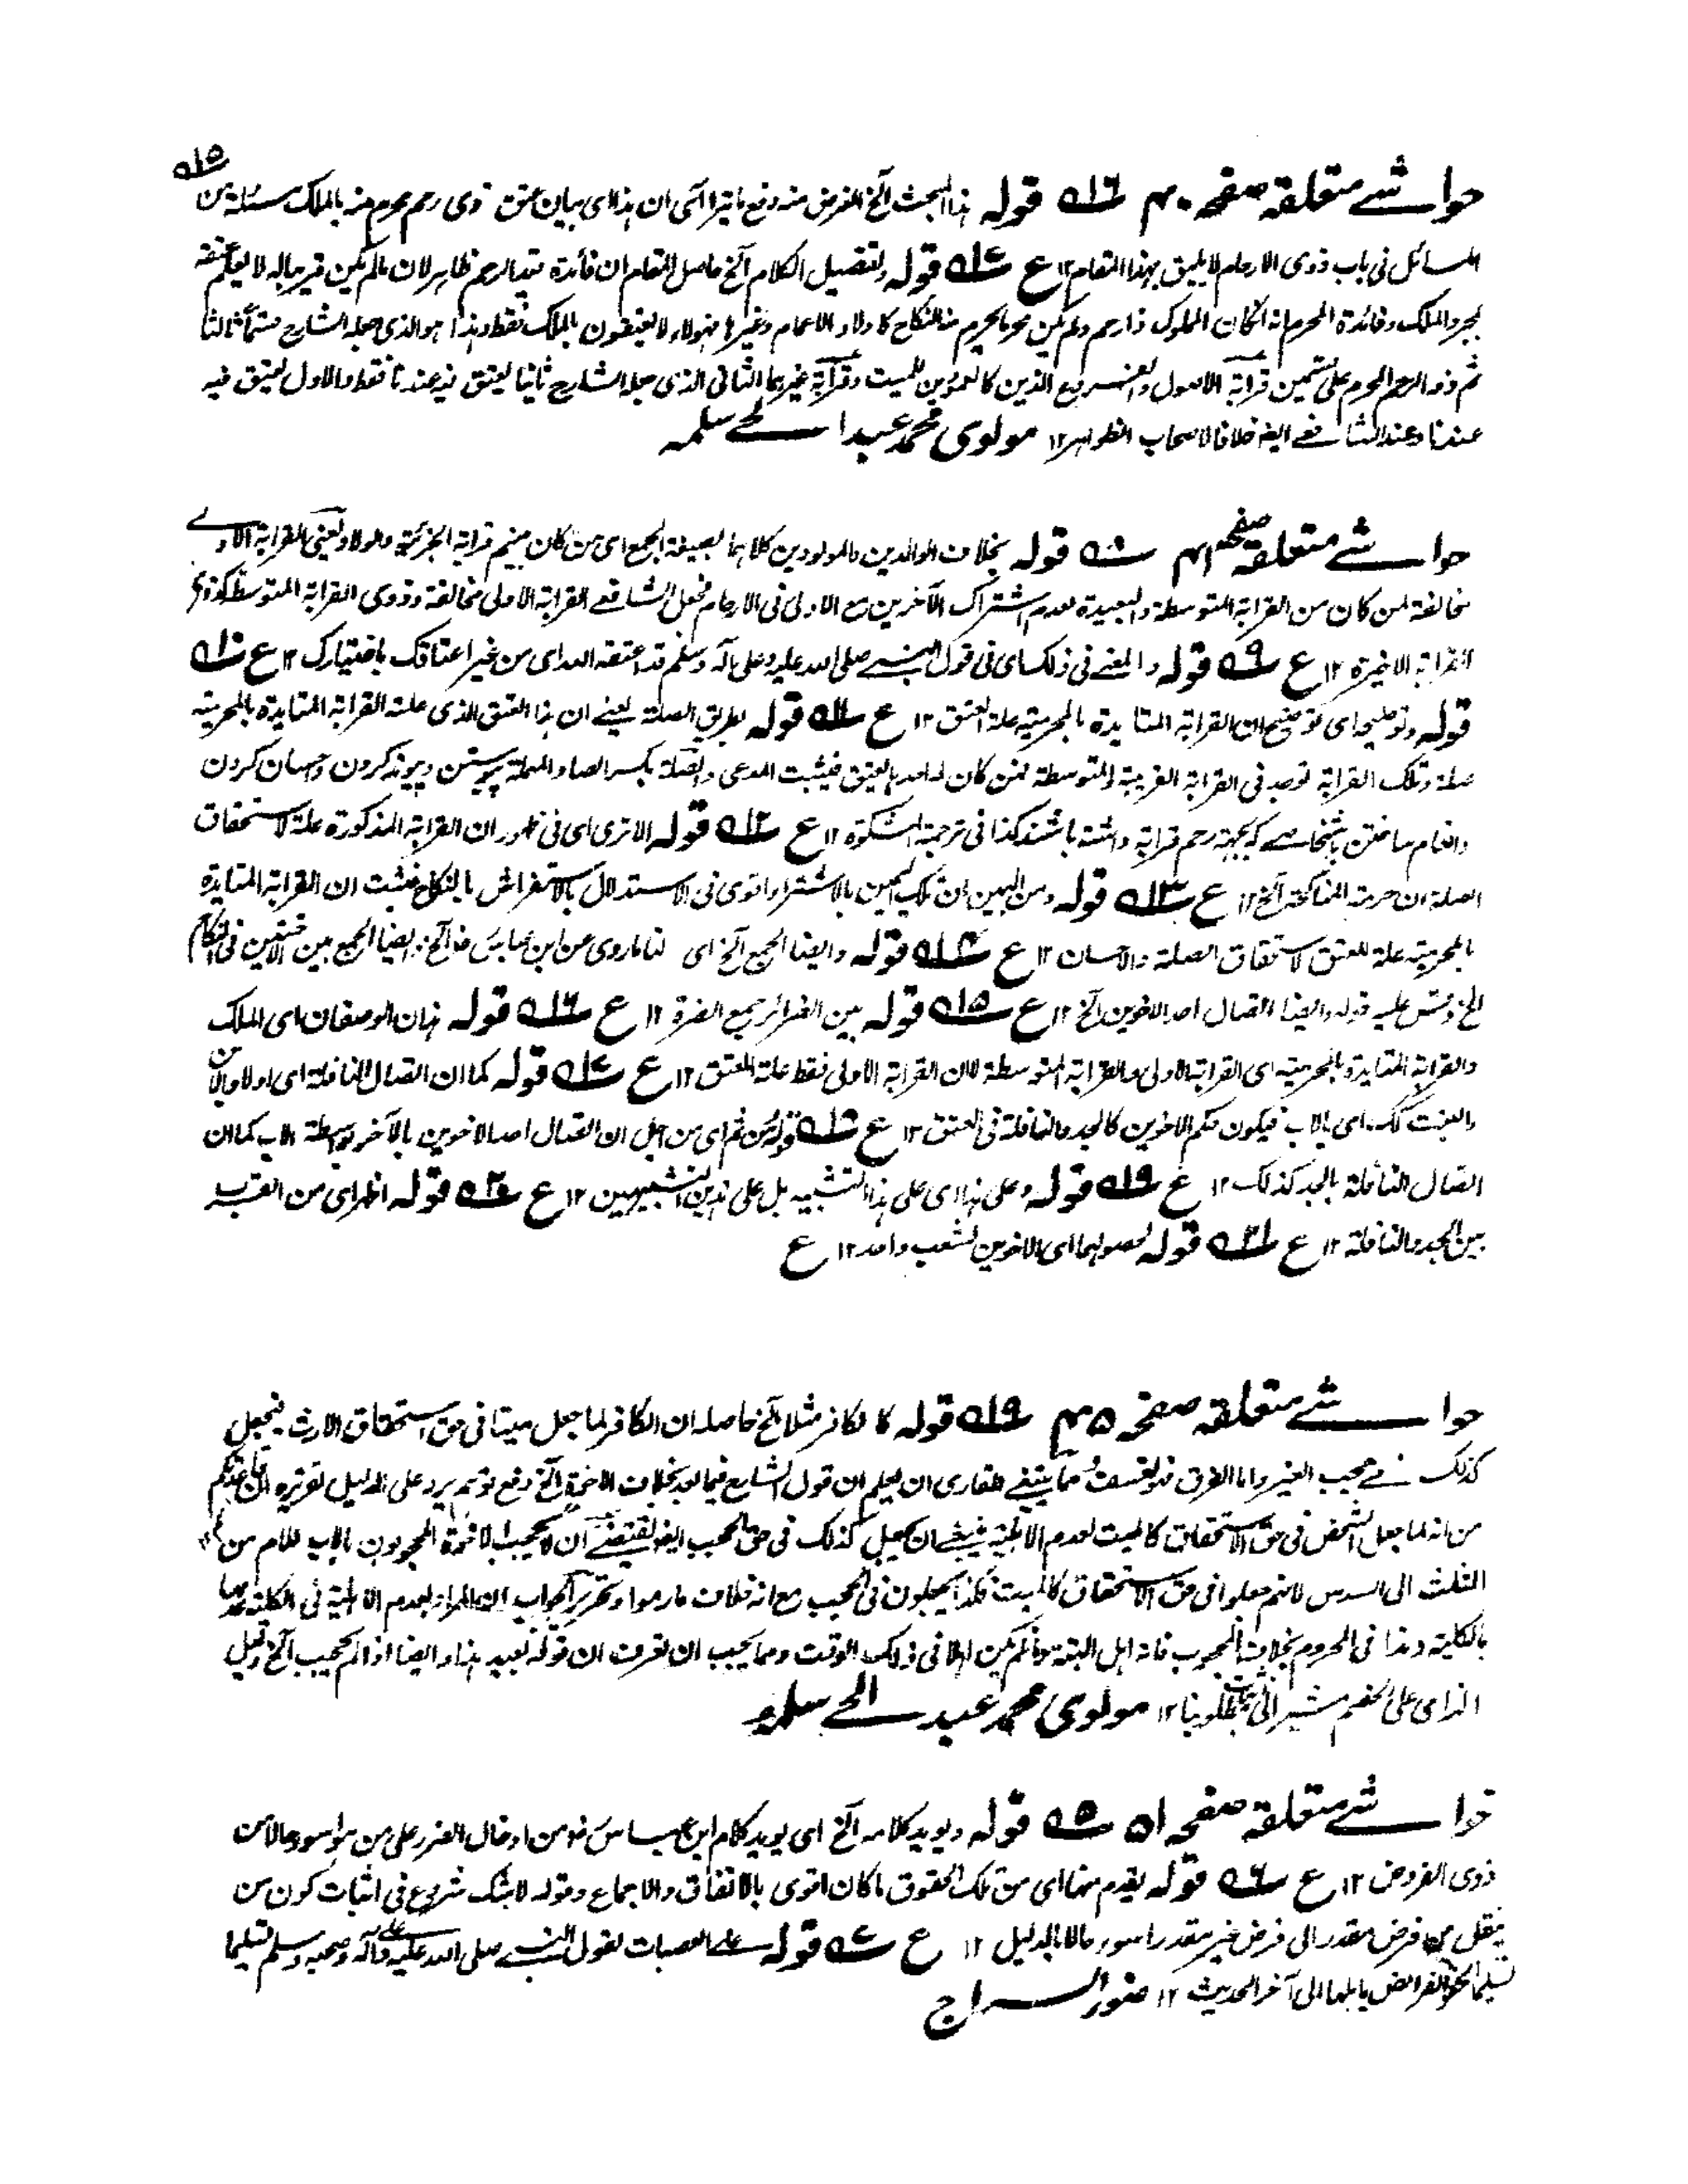 حواشے متعلقہ صفحہ ۴۰ ۱۶ قولہ ہذا البحث آلخ الغرض منہ دفع ما یتراآی ان ہذا ای بیان عتق ذی رحم محرم منہ بالملک مسئلة من
المسائل فی باب ذوی الارحام لا یلیق بہذا المقام ۱۲ ع ۱۷ قولہ وتفصیل الکلام آلخ حاصل المقام ان فائدة قید الرحم ظاہر لان مالم یکن قریبا لہ لا یعتق
بمجرد الملک وفائدة المحرم انہ ان کان المملوک ذا رحم ولم یکن محرما یحرم منہ النکاح کاولاد الاعمام وغیرہا فہولاء لا یعتقون بالملک فقط وہذا ہو الذی جعلہ الشارح قسما ثالثا
ثم ذو الرحم المحرم علی قسمین قرابة الاصول والفروع الذین کالعمودین للمیت وقرابة غیرہما الثانی الذی جعلہ الشارح ثانیا یعتق فیہ عندنا فقط والاول یعتق فیہ
عندنا وعند الشافعے ایضا خلافا لاصحاب الظواہر ۱۲ مولوی محمد عبدالحے سلمہ
حواشے متعلقہ صفحہ ۴۱ ۸ قولہ بخلاف الوالدین والمولودین کلاہما بصیغة الجمع ای من کان بینہم قرابة الجزئیة والولاد یعنی القرابة الاولے
مخالفة لمن کان من القرابة المتوسطة والبعیدة لعدم اشتراک الآخرین مع الاولی فی الارحام فجعل الشافعے القرابة الاولی مخالفة وذوی القرابة المتوسطة کذوی
القرابة الاخیرة ۱۲ ع ۹ قولہ والمعنے فی ذلک ای فی قول النبے صلی اللہ علیہ وعلی آلہ وسلم قد اعتقہ اللہ ای من غیر اعتاقک باختیارک ۱۲ ع ۱۰
قولہ وتوضیحہ ای توضیح ان القرابة المتایدة بالمحرمیة علة العتق ۱۲ ع ۱۱ قولہ بطریق الصلة یعنے ان ہذا العتق الذی علتہ القرابة المتایدة بالمحرمیة
صلة وتلک القرابة توجد فی القرابة القریبة والمتوسطة فمن کان لہ احدہما یعتق فیثبت المدعی والصلة بکسر الصاد المہملة پیوستن وپیوند کردن واحسان کردن
وانعام ساختن باشخاصے کہ بجہة رحم قرابة داشتہ باشند کذا فی ترجمة المشکوة ۱۲ ع ۱۲ قولہ الا تری ای فی ظہور ان القرابة المذکورة علة لاستحقاق
الصلة ان حرمة المناکحة آلخ ۱۲ ع ۱۳ قولہ ومن البین ان ملک الیمین بالاشتراء اقوی فی الاستدلال بالاستفراش بالنکاح فثبت ان القرابة المتایدة
بالمحرمیة علة للعتق لاستحقاق الصلة والاحسان ۱۲ ع ۱۴ قولہ وایضا الجمع آلخ ای لنا ما روی عن ابن عباس آلخ ایضا الجمع بین الاختین فی النکاح
الخ وقس علیہ قولہ وایضا اتصال احد الاخوین آلخ ۱۲ ع ۱۵ قولہ بین الضرائر جمع الضرة ۱۲ ع ۱۶ قولہ ہذان الوصفان ای الملک
والقرابة المتایدة بالمحرمیة ای القرابة الاولی والقرابة المتوسطة لا ان القرابة الاولی فقط علة للعتق ۱۲ ع ۱۷ قولہ کما ان اتصال النافلة ای اولاد الابن
والبنت کک ای بالاب فیکون حکم الاخوین کالجد والنافلة فی العتق ۱۲ ع ۱۸ قولہ من ثم ای من اجل ان اتصال احد الاخوین بالآخر بواسطة الاب کما ان
اتصال النافلة بالجد کذلک ۱۲ ع ۱۹ قولہ وعلی ہذا ای علی ہذا التشبیہ بل علی ہذین التشبیہین ۱۲ ع ۲۰ قولہ اظہر ای من القرب
بین الجد والنافلة ۱۲ ع ۲۱ قولہ لحصولہما ای الاخوین لشعب واحد ۱۲ ع
حواشے متعلقہ صفحہ ۴۵ ۱۹ قولہ کالکافر مثلا آلخ حاصلہ ان الکافر لما جعل میتا فی حق استحقاق الارث فیجعل
کذلک فے حجب الغیر واما الفرق مما ینبغے للقاری ان یعلم ان قول الشارح فیما بعد بخلاف الاخوة آلخ دفع توہم یرد علی الدلیل تقریرہ ان ما ذکرتم
من انہ لما جعل الشخص فی حق الاستحقاق کالمیت لعدم الاہلیة فینبغے ان یجعل کذلک فی حق الحجب ایضا یقتضے ان لا یحجب الاخوة المحجوبون بالاب للام من
الثلث الی السدس لانہم جعلوا فی حق الاستحقاق کالمیت فکذا یجعلون فی الحجب مع انہ خلاف ما رموا وتحریر الجواب ان المراد بعدم الاہلیة فی الکلام عدمہا
بالکلیة وہذا فی المحروم بخلاف المحجوب فانہ اہل البتة وان لم یکن اہلا فی ذلک الوقت ومما یجب ان یعرف ان قولہ بعید ہذا وایضا اذا لم یحجب آلخ دلیل
الزامی علی الخصم مشیر الی اثبات مطلوبنا ۱۲ مولوی محمد عبدالحے سلمہ
حواشے متعلقہ صفحہ ۵۱ ۵ قولہ ویوید کلامہ آلخ ای یوید کلام ابن عباس من ادخال الضرر علی من ہو اسوء حالا من
ذوی الفروض ۱۲ ع ۶ قولہ یقدم منہا ای من تلک الحقوق ما کان اقوی بالاتفاق والاجماع وقولہ لا شک شروع فی اثبات کون من
ینقل من فرض مقدر الی فرض غیر مقدر اسوء حالا بالدلیل ۱۲ ع ۷ قولہ علی العصبات لقول النبے صلی اللہ علیہ وعلی آلہ وصحبہ وسلم تسلیما
تسلیما الحقوا الفرائض باہلہا الی آخر الحدیث ۱۲ ضوء السراج